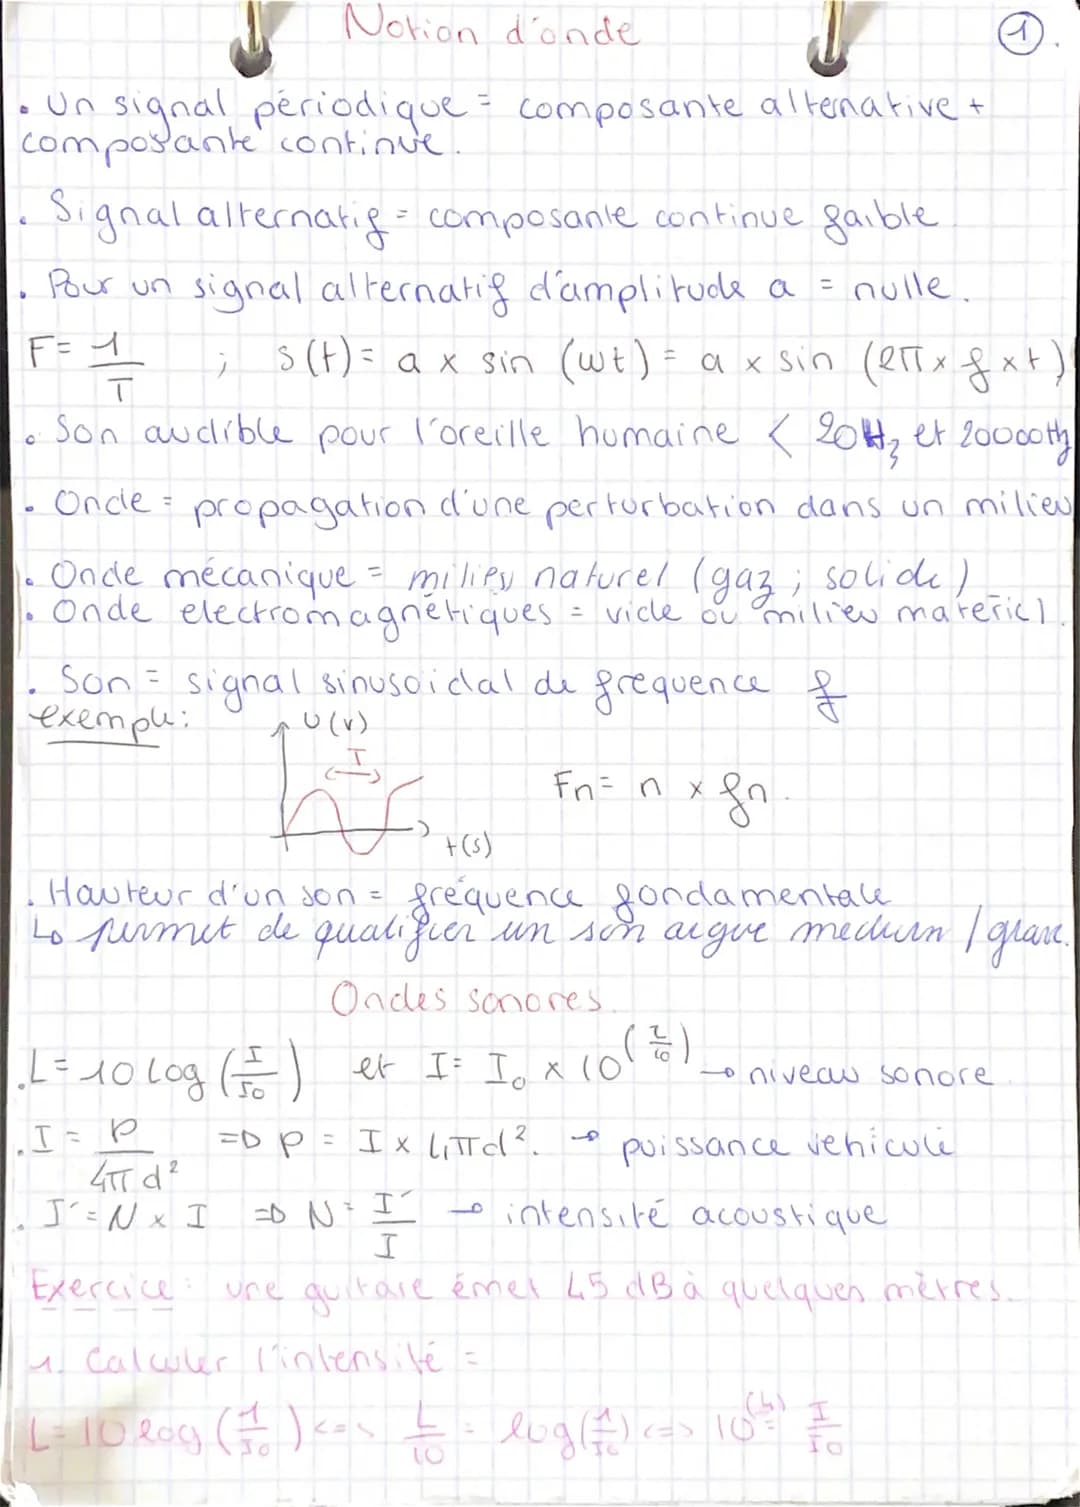 Notion d'onde
1.
• Un signal périodique = composante alternative +
composante continue.
• Signal alternatif = composante continue faible.
• Pour un signal alternatif d'amplitude a = nulle.
F = 1/T ; s(t) = a x sin (wt) = a x sin (2π x f x t)
• Son audible pour l'oreille humaine < 20Hz et 20000Hz
• Onde = propagation d'une perturbation dans un milieu
• Onde mécanique = milieu naturel (gaz ; solide)
• Onde electromagnétiques = vide ou milieu materiel.
• Son = signal sinusoidal de frequence f
exemple:
U(v)
T
Fn = n x fn.
t(s)
• Hauteur d'un son = fréquence fondamentale
↳ permet de qualifier un son aigue medium / grave.
Ondes sonores.
• L = 10 log (I/I0) et I = I0 x 10^(L/10) → niveau sonore
• I = P/4πd² => P = I x 4πd². → puissance vehiculé
• I' = N x I => N = I'/I → intensité acoustique
Exercice: une guitare émet 45 dB à quelques mètres.
1. Calculer l'intensité =
L = 10 log (1/I0) <=> L/10 = log(1/I0) <=> 10^(L) = I/I0